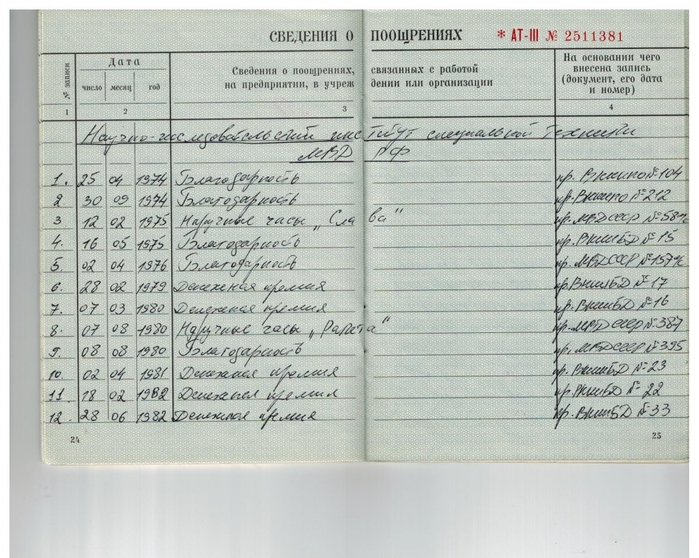 СВЕДЕНИЯ О ПООЩРЕНИЯХ * АТ-III № 2511381
№ записи
Дата
число месяц год
Сведения о поощрениях, связанных с работой
на предприятии, в учреж дении или организации
На основании чего
внесена запись
(документ, его дата
и номер)
1 2 3 4
Научно-исследовательский институт специальной техники
МВД РФ
1. 25 04 1974 Благодарность пр. ВНИИПО № 104
2 30 09 1974 Благодарность пр. ВНИИПО № 212
3 12 02 1975 Наручные часы „Слава" пр. МВД СССР
4. 16 05 1975 Благодарность пр. ВНИИБД № 15
5. 02 04 1976 Благодарность пр. МВД СССР
6. 28 02 1979 Денежная премия пр. ВНИИБД № 17
7. 07 03 1980 Денежная премия пр. ВНИИБД № 16
8. 07 08 1980 Наручные часы „Ракета" пр. МВД СССР № 387
9. 08 08 1980 Благодарность пр. МВД СССР № 395
10. 02 04 1981 Денежная премия пр. ВНИИБД № 23
11. 18 02 1982 Денежная премия пр. ВНИИБД № 22
12. 28 06 1982 Денежная премия пр. ВНИИБД № 33
24
25